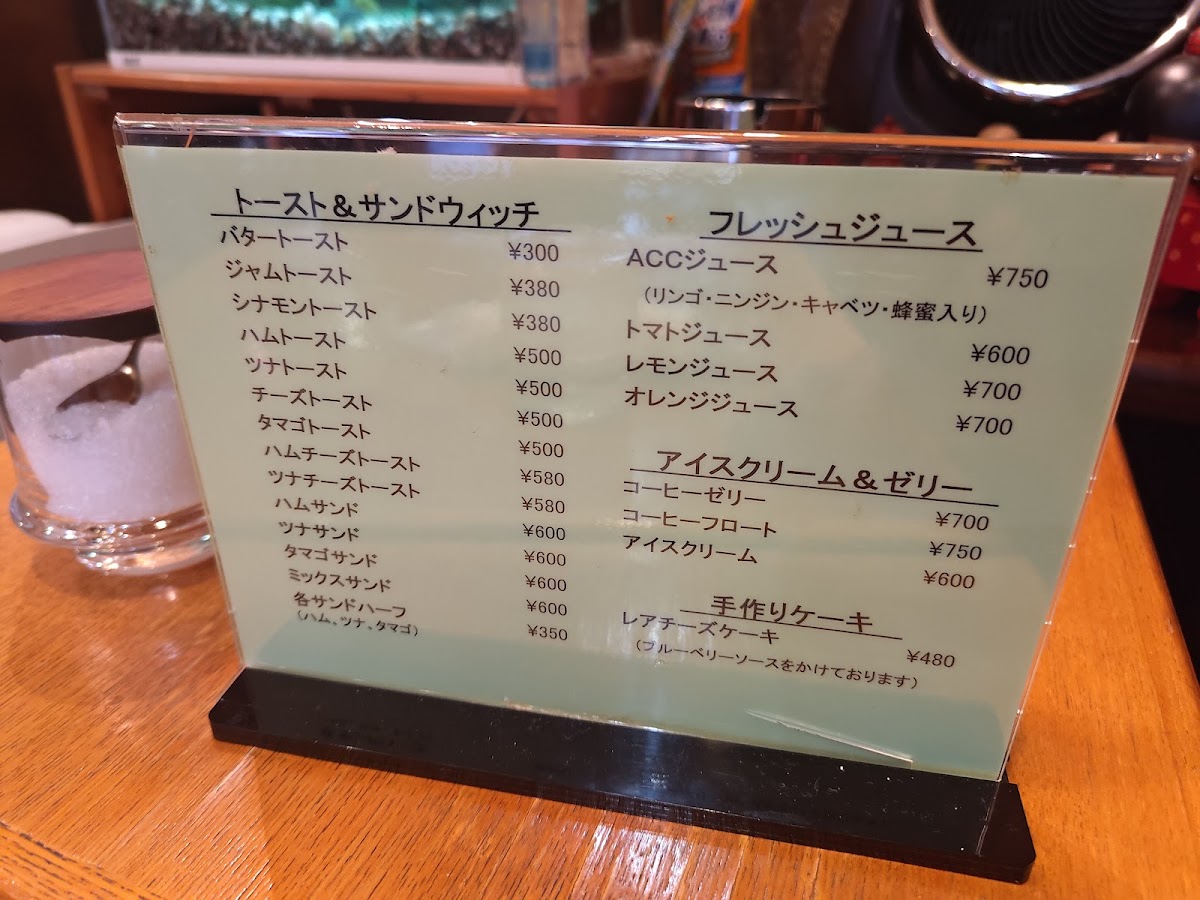 トースト&サンドウィッチ
バタートースト ¥300
ジャムトースト ¥380
シナモントースト ¥380
ハムトースト ¥500
ツナトースト ¥500
チーズトースト ¥500
タマゴトースト ¥500
ハムチーズトースト ¥580
ツナチーズトースト ¥580
ハムサンド ¥600
ツナサンド ¥600
タマゴサンド ¥600
ミックスサンド ¥600
各サンドハーフ ¥350
(ハム、ツナ、タマゴ)
フレッシュジュース
ACCジュース ¥750
(リンゴ・ニンジン・キャベツ・蜂蜜入り)
トマトジュース ¥600
レモンジュース ¥700
オレンジジュース ¥700
アイスクリーム&ゼリー
コーヒーゼリー ¥700
コーヒーフロート ¥750
アイスクリーム ¥600
手作りケーキ
レアチーズケーキ ¥480
(ブルーベリーソースをかけております)